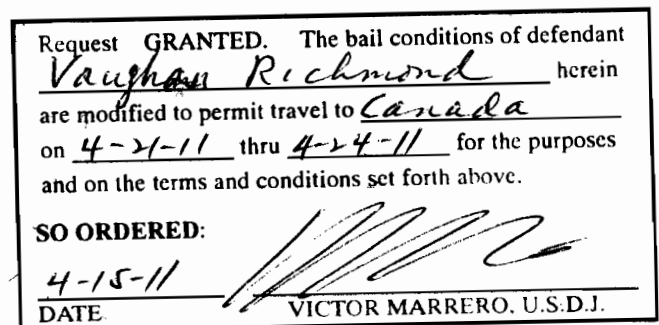 Request GRANTED. The bail conditions of defendant
Vaughan Richmond herein
are modified to permit travel to Canada
on 4-21-11 thru 4-24-11 for the purposes
and on the terms and conditions set forth above.
SO ORDERED:
4-15-11
DATE VICTOR MARRERO, U.S.D.J.